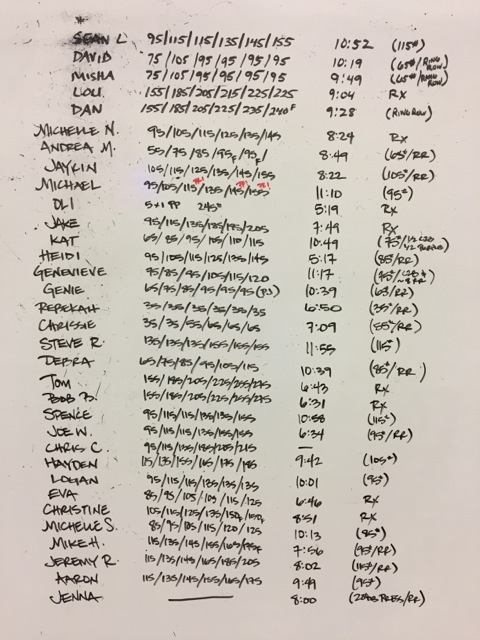 SEAN L 95/115/115/135/145/155 10:52 (115#)
DAVID 75/105/95/95/95/95 10:19 (65#/RING ROW)
MISHA 75/105/95/95/95/95 9:49 (65#/RING ROW)
LOU 155/185/205/215/225/225 9:04 RX
DAN 155/185/205/225/235/240F 9:28 (RING ROW)
MICHELLE N. 95/105/115/125/135/145 8:24 RX
ANDREA M. 55/75/85/95F/95F/ 8:49 (65#/RR)
JAYKIN 105/115/125/135/145/155 8:22 (105#/RR)
MICHAEL 95/105/115/135/145/155 11:10 (95#)
OLI 5x1 PP 245# 5:19 RX
JAKE 95/115/135/155/185/205 7:49 RX
KAT 65/85/95/105/110/115 10:49 (75#/1/2
HEIDI 95/105/115/125/135/145 5:17 (85#/RR)
GENEVIEVE 75/85/95/105/115/120 11:17 (75#/
GENIE 65/75/85/95/95/95 10:39 (65/RR)
REBEKAH 35/35/35/35/35/35 6:50 (35#/RR)
CHRISSIE 35/35/55/65/65/65 7:09 (55#/RR)
STEVE R. 135/135/135/155/155/155 11:55 (115#)
DEBRA 65/75/85/95/105/115 10:39 (85#/RR)
TOM 155/185/205/225/255/275 6:43 RX
BOB B. 155/185/205/225/255/275 6:31 RX
SPENCE 95/115/115/135/135/155 10:58 (115#)
JOE W. 95/115/115/135/155/155 6:34 (95#/RR)
CHRIS C. 95/115/135/185/205/215 —
HAYDEN 115/135/155/165/175/185 9:42 (105#)
LOGAN 95/115/115/135/135/135 10:01 (95#)
EVA 85/95/105/105/115/125 6:46 RX
CHRISTINE 105/115/125/135/150F/150F 8:51 RX
MICHELLE S. 85/95/105/115/120/125 10:13 (85#)
MIKE H. 115/135/145/155/165/175F 7:56 (95/RR)
JEREMY R. 115/135/145/165/185/205 8:02 (115#/RR)
AARON 115/135/145/155/165/175 9:49 (95#)
JENNA — 8:00 (20DB PRESS/RR)